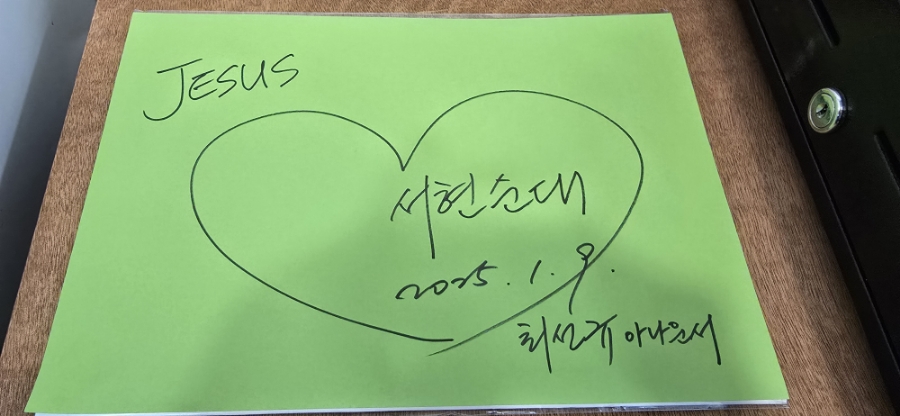 JESUS
서현순대
2025. 1. 9.
최선규 아나운서